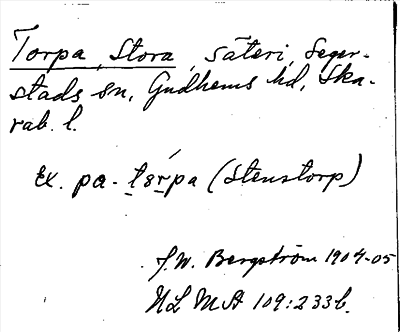 Torpa, Stora, säteri, Seger-
stads sn, Gudhems hd, Ska-
rab. l.
Ex. pa-tørpa (Stenstorp)
J.W. Bergström 1904-05
NLMA 109:233b.